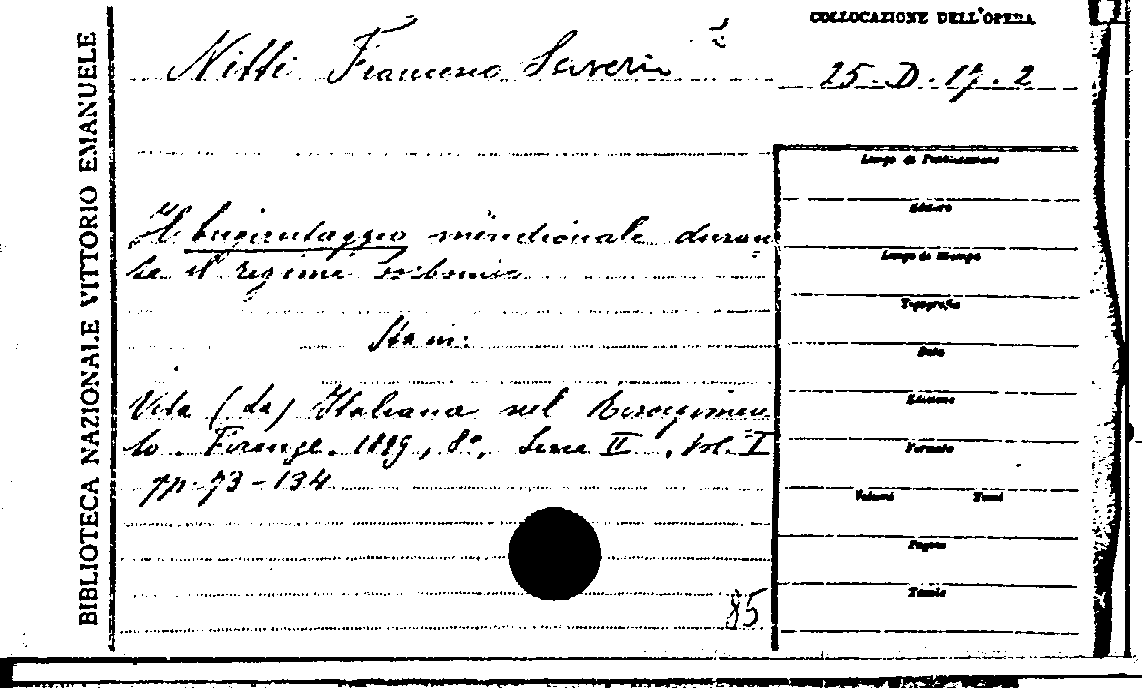 BIBLIOTECA NAZIONALE VITTORIO EMANUELE
COLLOCAZIONE DELL'OPERA
Nitti Francesco Saverio
25.D.17.2
Il brigantaggio meridionale duran
te il regime borbonico
Sta in:
Vita (La) Italiana nel Risorgimen
to. Firenze. 1899, 8°, Serie II, Vol. I
pp. 73-134
85
Luogo di Pubblicazione
Editore
Luogo di Stampa
Tipografia
Data
Edizione
Formato
Volumi Tomi
Pagine
Tavole